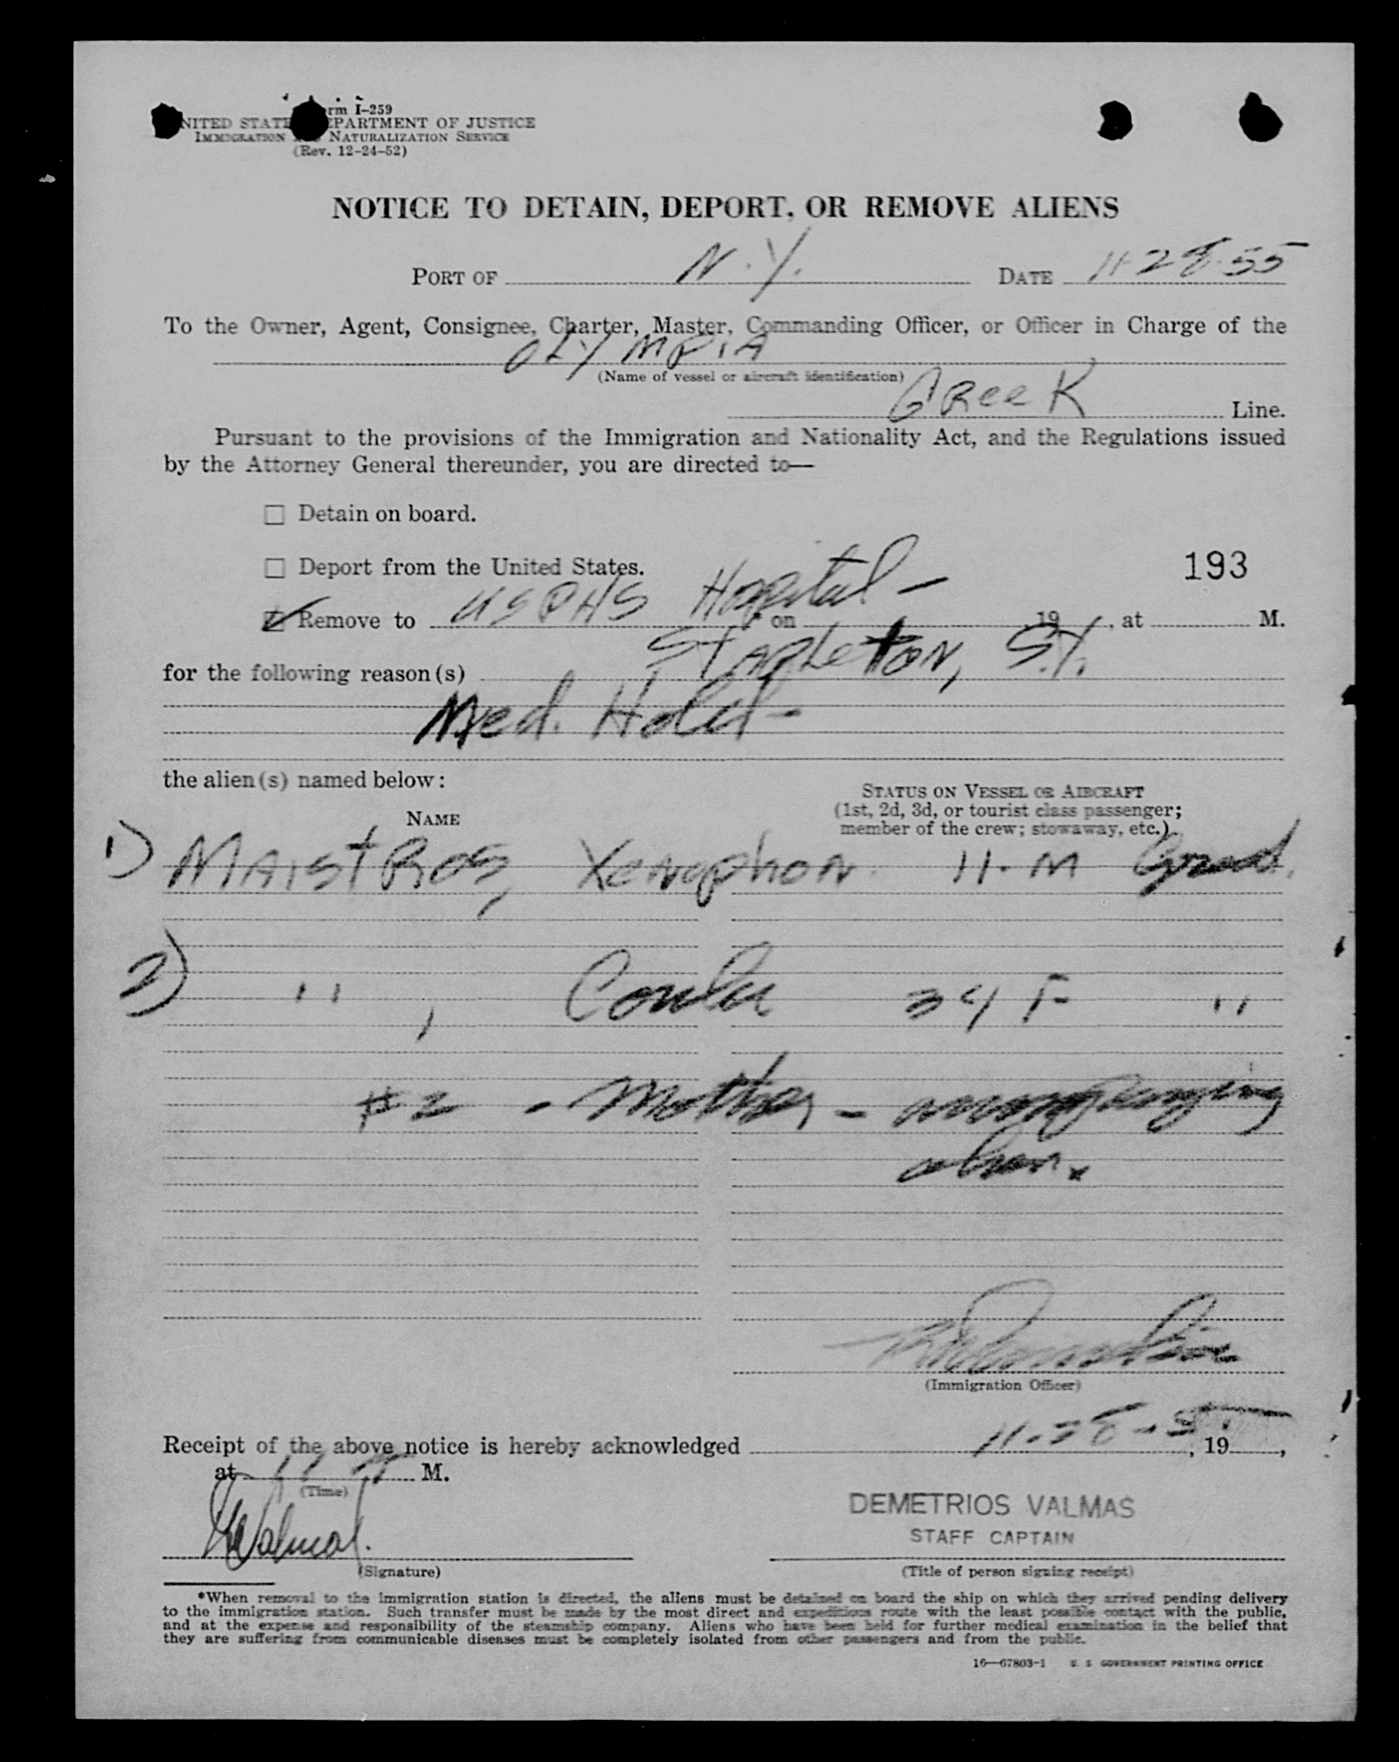 Form I-259
UNITED STATES DEPARTMENT OF JUSTICE
IMMIGRATION AND NATURALIZATION SERVICE
(Rev. 12-24-52)
NOTICE TO DETAIN, DEPORT, OR REMOVE ALIENS
PORT OF N.Y. DATE 11-28-55
To the Owner, Agent, Consignee, Charter, Master, Commanding Officer, or Officer in Charge of the
OLYMPIA
(Name of vessel or aircraft identification)
Greek Line.
Pursuant to the provisions of the Immigration and Nationality Act, and the Regulations issued
by the Attorney General thereunder, you are directed to—
☐ Detain on board.
☐ Deport from the United States. 193
☑ Remove to USPHS Hospital - * on 19 , at M.
Stapleton, S.I.
for the following reason(s)
Med. Hold -
the alien(s) named below:
STATUS ON VESSEL OR AIRCRAFT
(1st, 2d, 3d, or tourist class passenger;
NAME member of the crew; stowaway, etc.)
1) MAISTROS, Xenophon 11-M
2) " , 34 F "
#2 - Mother - accompanying
alien.
(Immigration Officer)
Receipt of the above notice is hereby acknowledged 11-28-55, 19 ,
at M.
(Time)
DEMETRIOS VALMAS
STAFF CAPTAIN
Valmas.
(Signature) (Title of person signing receipt)
*When removal to the immigration station is directed, the aliens must be detained on board the ship on which they arrived pending delivery
to the immigration station. Such transfer must be made by the most direct and expeditious route with the least possible contact with the public,
and at the expense and responsibility of the steamship company. Aliens who have been held for further medical examination in the belief that
they are suffering from communicable diseases must be completely isolated from other passengers and from the public.
16—67803-1 U. S. GOVERNMENT PRINTING OFFICE